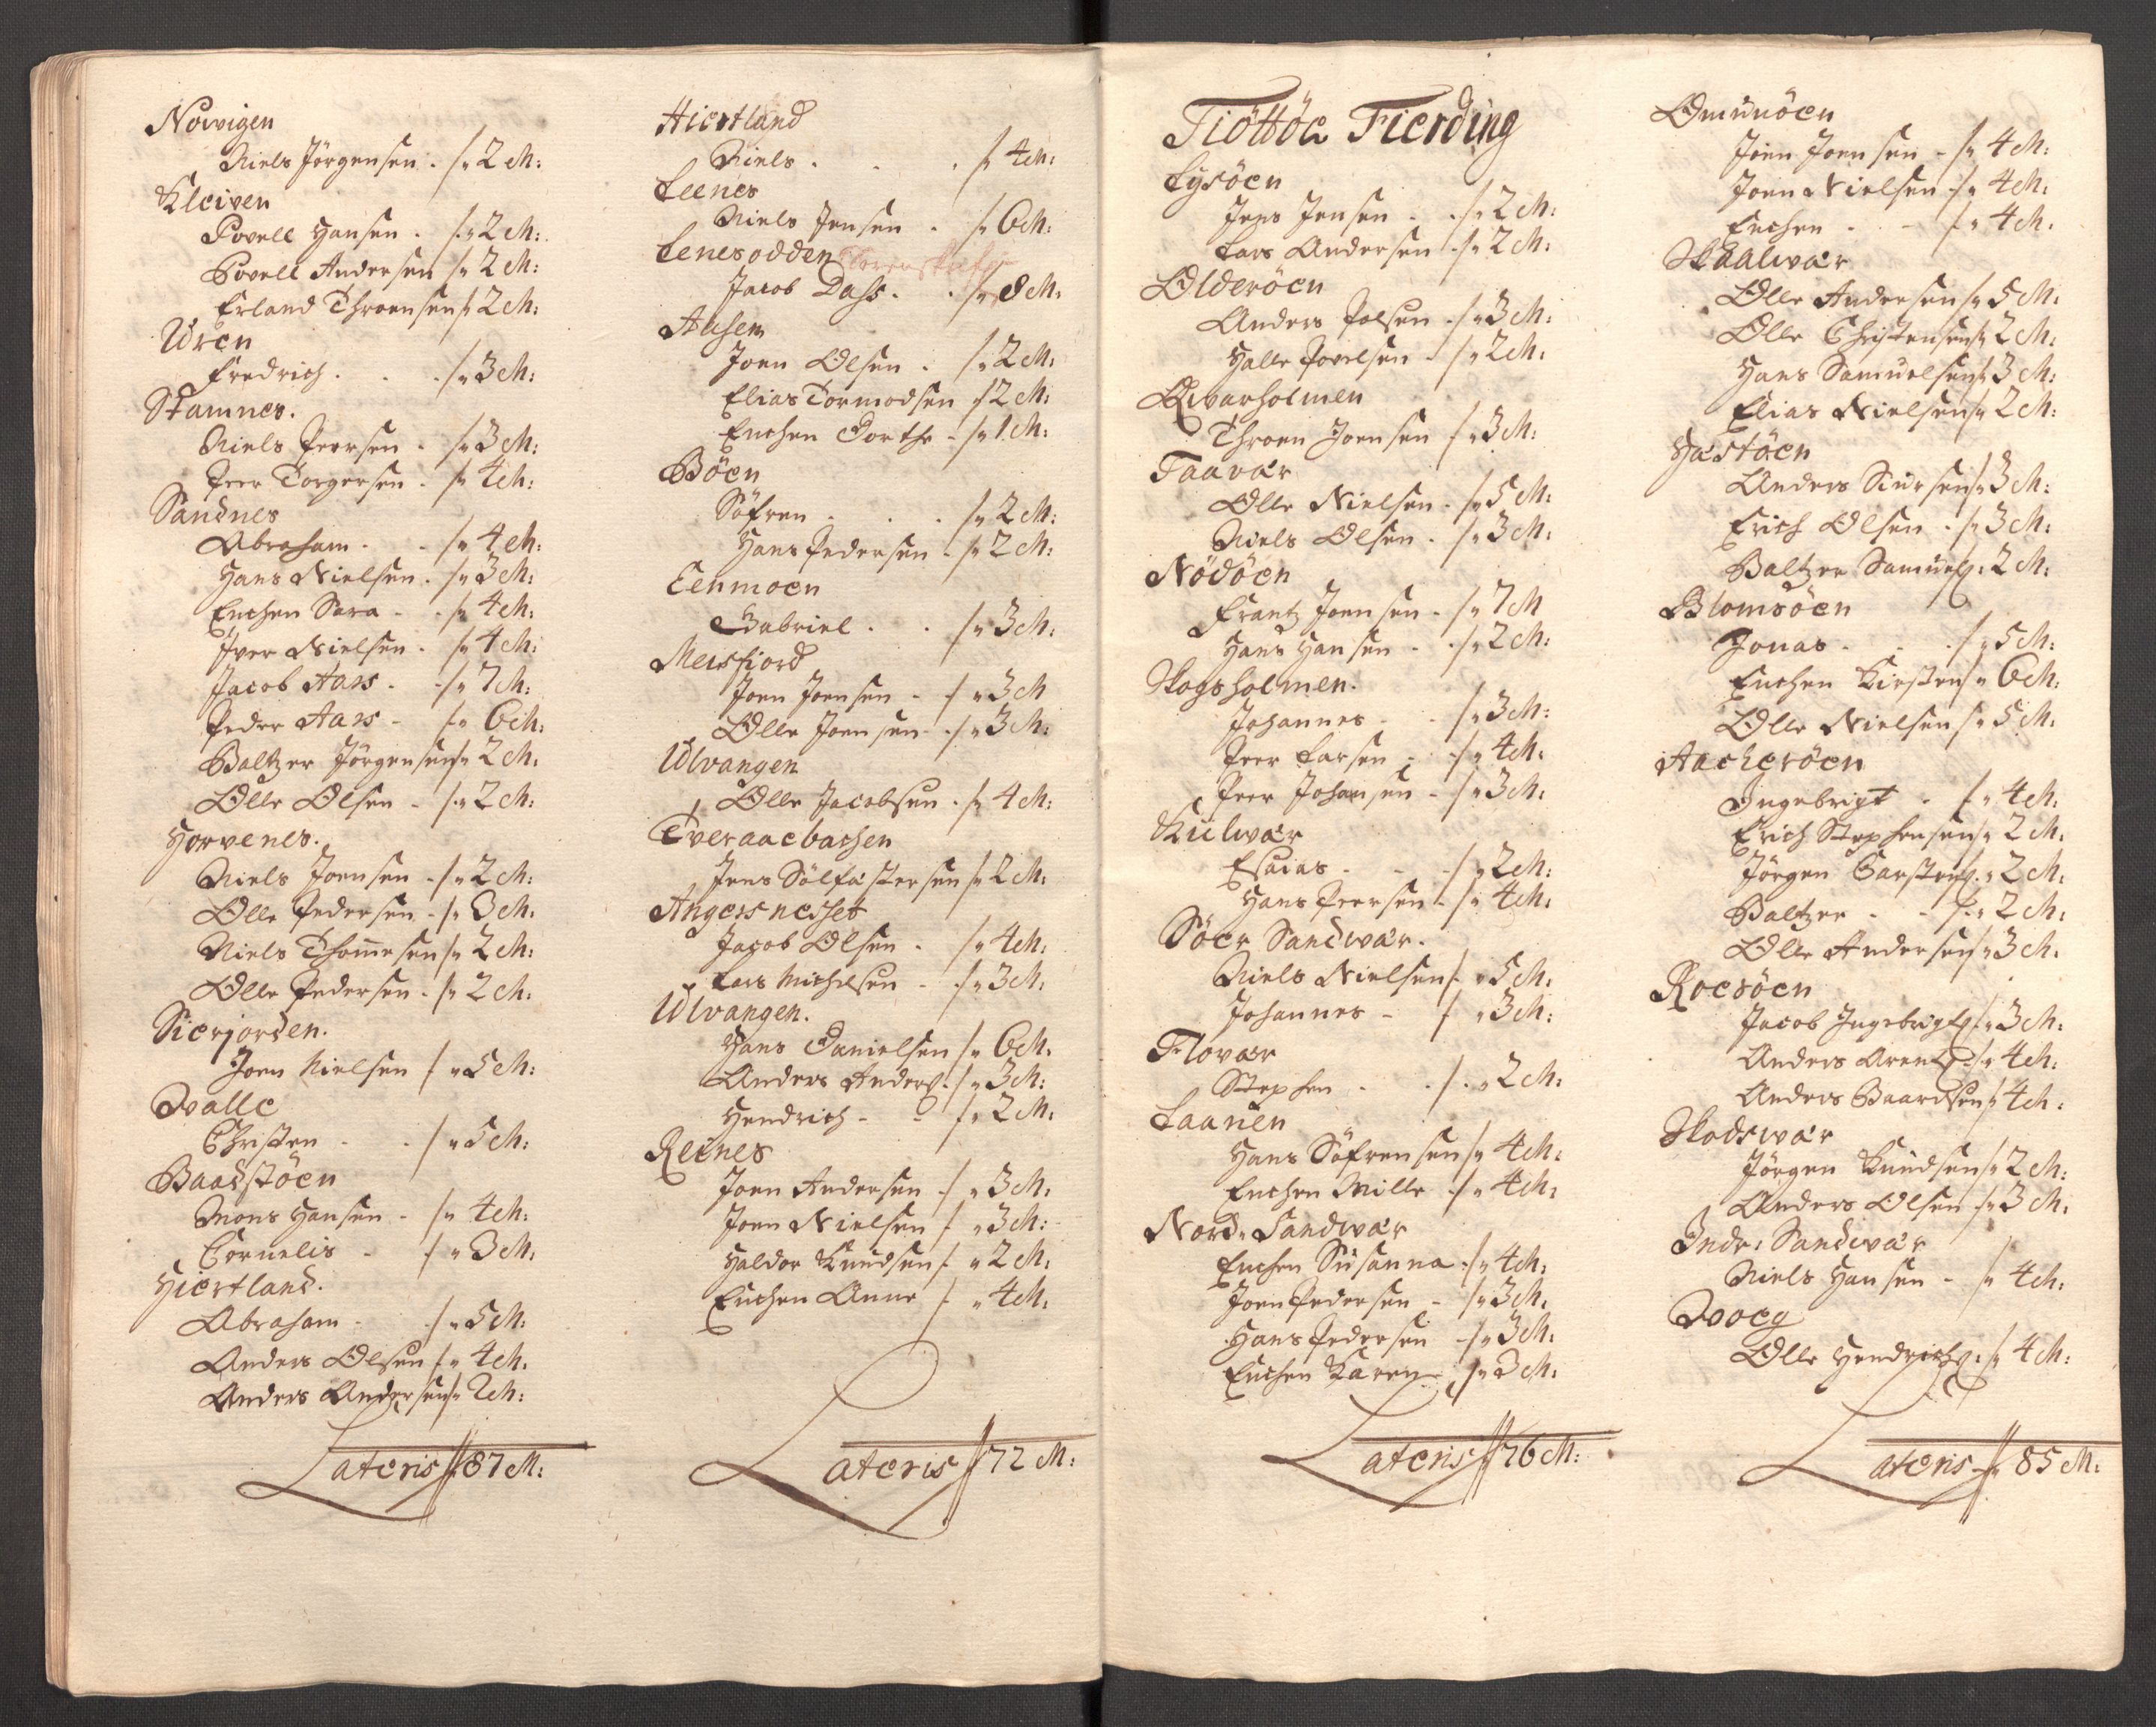 Norvigen
Niels Jörgensen . /" 2 M:
Kleiven
Povell Hansen . /" 2 M:
Povell Andersen /" 2 M:
Erland Throensen /" 2 M:
Uren
Fredrich . . /" 3 M:
Stamnes.
Niels Peersen - /" 3 M:
Peer Torgersen . /" 4 M:
Sandnes
Abraham . . /" 4 M:
Hans Nielsen . /" 3 M:
Enchen Sara - . /" 4 M:
Iver Nielsen . /" 4 M:
Jacob Aars . -/" 7 M:
Peder Aars - /" 6 M:
Baltzer Jörgensen /" 2 M:
Olle Olsen - /" 2 M:
Horvenes.
Niels Joensen - /" 2 M:
Olle Pedersen - /" 3 M:
Niels Thomesen /" 2 M:
Olle Pedersen - /" 2 M:
Sierjorden.
Joen Nielsen / " 5 M:
Walle
Christen - . / " 5 M:
Baadstöen
Mons Hansen - /" 4 M:
Cornelis - / " 3 M:
Hiertland.
Abraham - - / " 5 M:
Anders Olsen / " 4 M:
Anders Andersen /" 2 M:
Lateris /" 87 M:
Hiertland
Niels . . . / 4 M:
Leenes
Niels Jensen . /" 6 M:
Lenesodden
Jacob Dass . . /" 8 M:
Ausem
Joen Olsen . /" 2 M:
Elias Tormodsen /" 2 M:
Enchen Dorthe - /" 1 M:
Böen
Söfren . . . /" 2 M:
Hans Pedersen - /" 2 M:
Eenmoen
Gabriel . . /" 3 M:
Meisfiord
Joen Joensen - / " 3 M
Olle Joensen - /" 3 M:
Ulvangen
Olle Jacobsen . /" 4 M:
Tveraaebachen
Jens Sölfastersen /" 2 M:
Angersnesset
Jacob Olsen . /" 4 M:
Lars Michelsen - /" 3 M:
Ulvangen.
Hans Danielsen /" 6 M:
Anders Anders: /" 3 M:
Hendrich - - /" 2 M:
Reines
Joen Andersen / " 3 M:
Joen Nielsen / " 3 M:
Haldor Knudsen / " 2 M:
Enchen Anne / " 4 M:
Lateris /" 72 M:
Tiöttöe Fierding
Lysöen
Jens Jensen . . /" 2 M:
Lars Andersen - /" 2 M:
Olderöen
Anders Polsen - /" 3 M:
Halle Povelsen - /" 2 M:
Qvarholmen
Throen Joensen /" 3 M:
Taavær
Olle Nielsen - /" 5 M:
Niels Olsen . /" 3 M:
Nödöen
Frantz Joensen - /" 7 M
Hans Hansen - . /" 2 M:
Skogsholmen.
Johannes - - /" 3 M:
Peer Larsen - - /" 4 M:
Peer Johansen - /" 3 M:
Kulwær
Esaias - - - /" 2 M:
Hans Peersen - /" 4 M:
Söer Sandwær.
Niels Nielsen / " 5 M:
Johannes - / " 3 M:
Flovær
Stephen - . / " 2 M:
Laanen
Hans Söfrensen /" 4 M:
Enchen Mille - /" 4 M:
Nord. Sandwær
Enchen Susanna - /" 4 M:
Joen Pedersen - /" 3 M:
Hans Pedersen - /" 3 M:
Enchen Karen - /" 3 M:
Lateris /" 76 M:
Omunöen
Joen Joensen - /" 4 M:
Joen Nielsen - /" 4 M:
Enchen . - /" 4 M:
Skaalvær
Olle Andersen /" 5 M:
Olle Christensen /" 2 M:
Hans Samuelsen /" 3 M:
Elias Nielsen /" 2 M:
Hæstöen
Anders Siursen /" 3 M:
Erich Olsen . /" 3 M:
Baltzer Samuels: 2 M:
Blomsöen
Jonas - . . /" 5 M:
Enchen Kirsten /" 6 M:
Olle Nielsen /" 5 M:
Aachesöen
Ingebrigt - /" 4 M:
Erich Stephensen /" 2 M:
Jörgen Carstens: /" 2 M:
Baltzer - - /" 2 M:
Olle Andersen /" 3 M:
Roesöen
Jacob Ingebrigts: /" 3 M:
Anders Arents: /" 4 M:
Anders Baardsen /" 4 M:
Skodswær
Jörgen Knudsen /" 2 M:
Anders Olsen /" 3 M:
Indr: Sandwær
Niels Hansen - /" 4 M:
Woeg
Olle Hendrichs: /" 4 M:
Lateris /" 85 M: